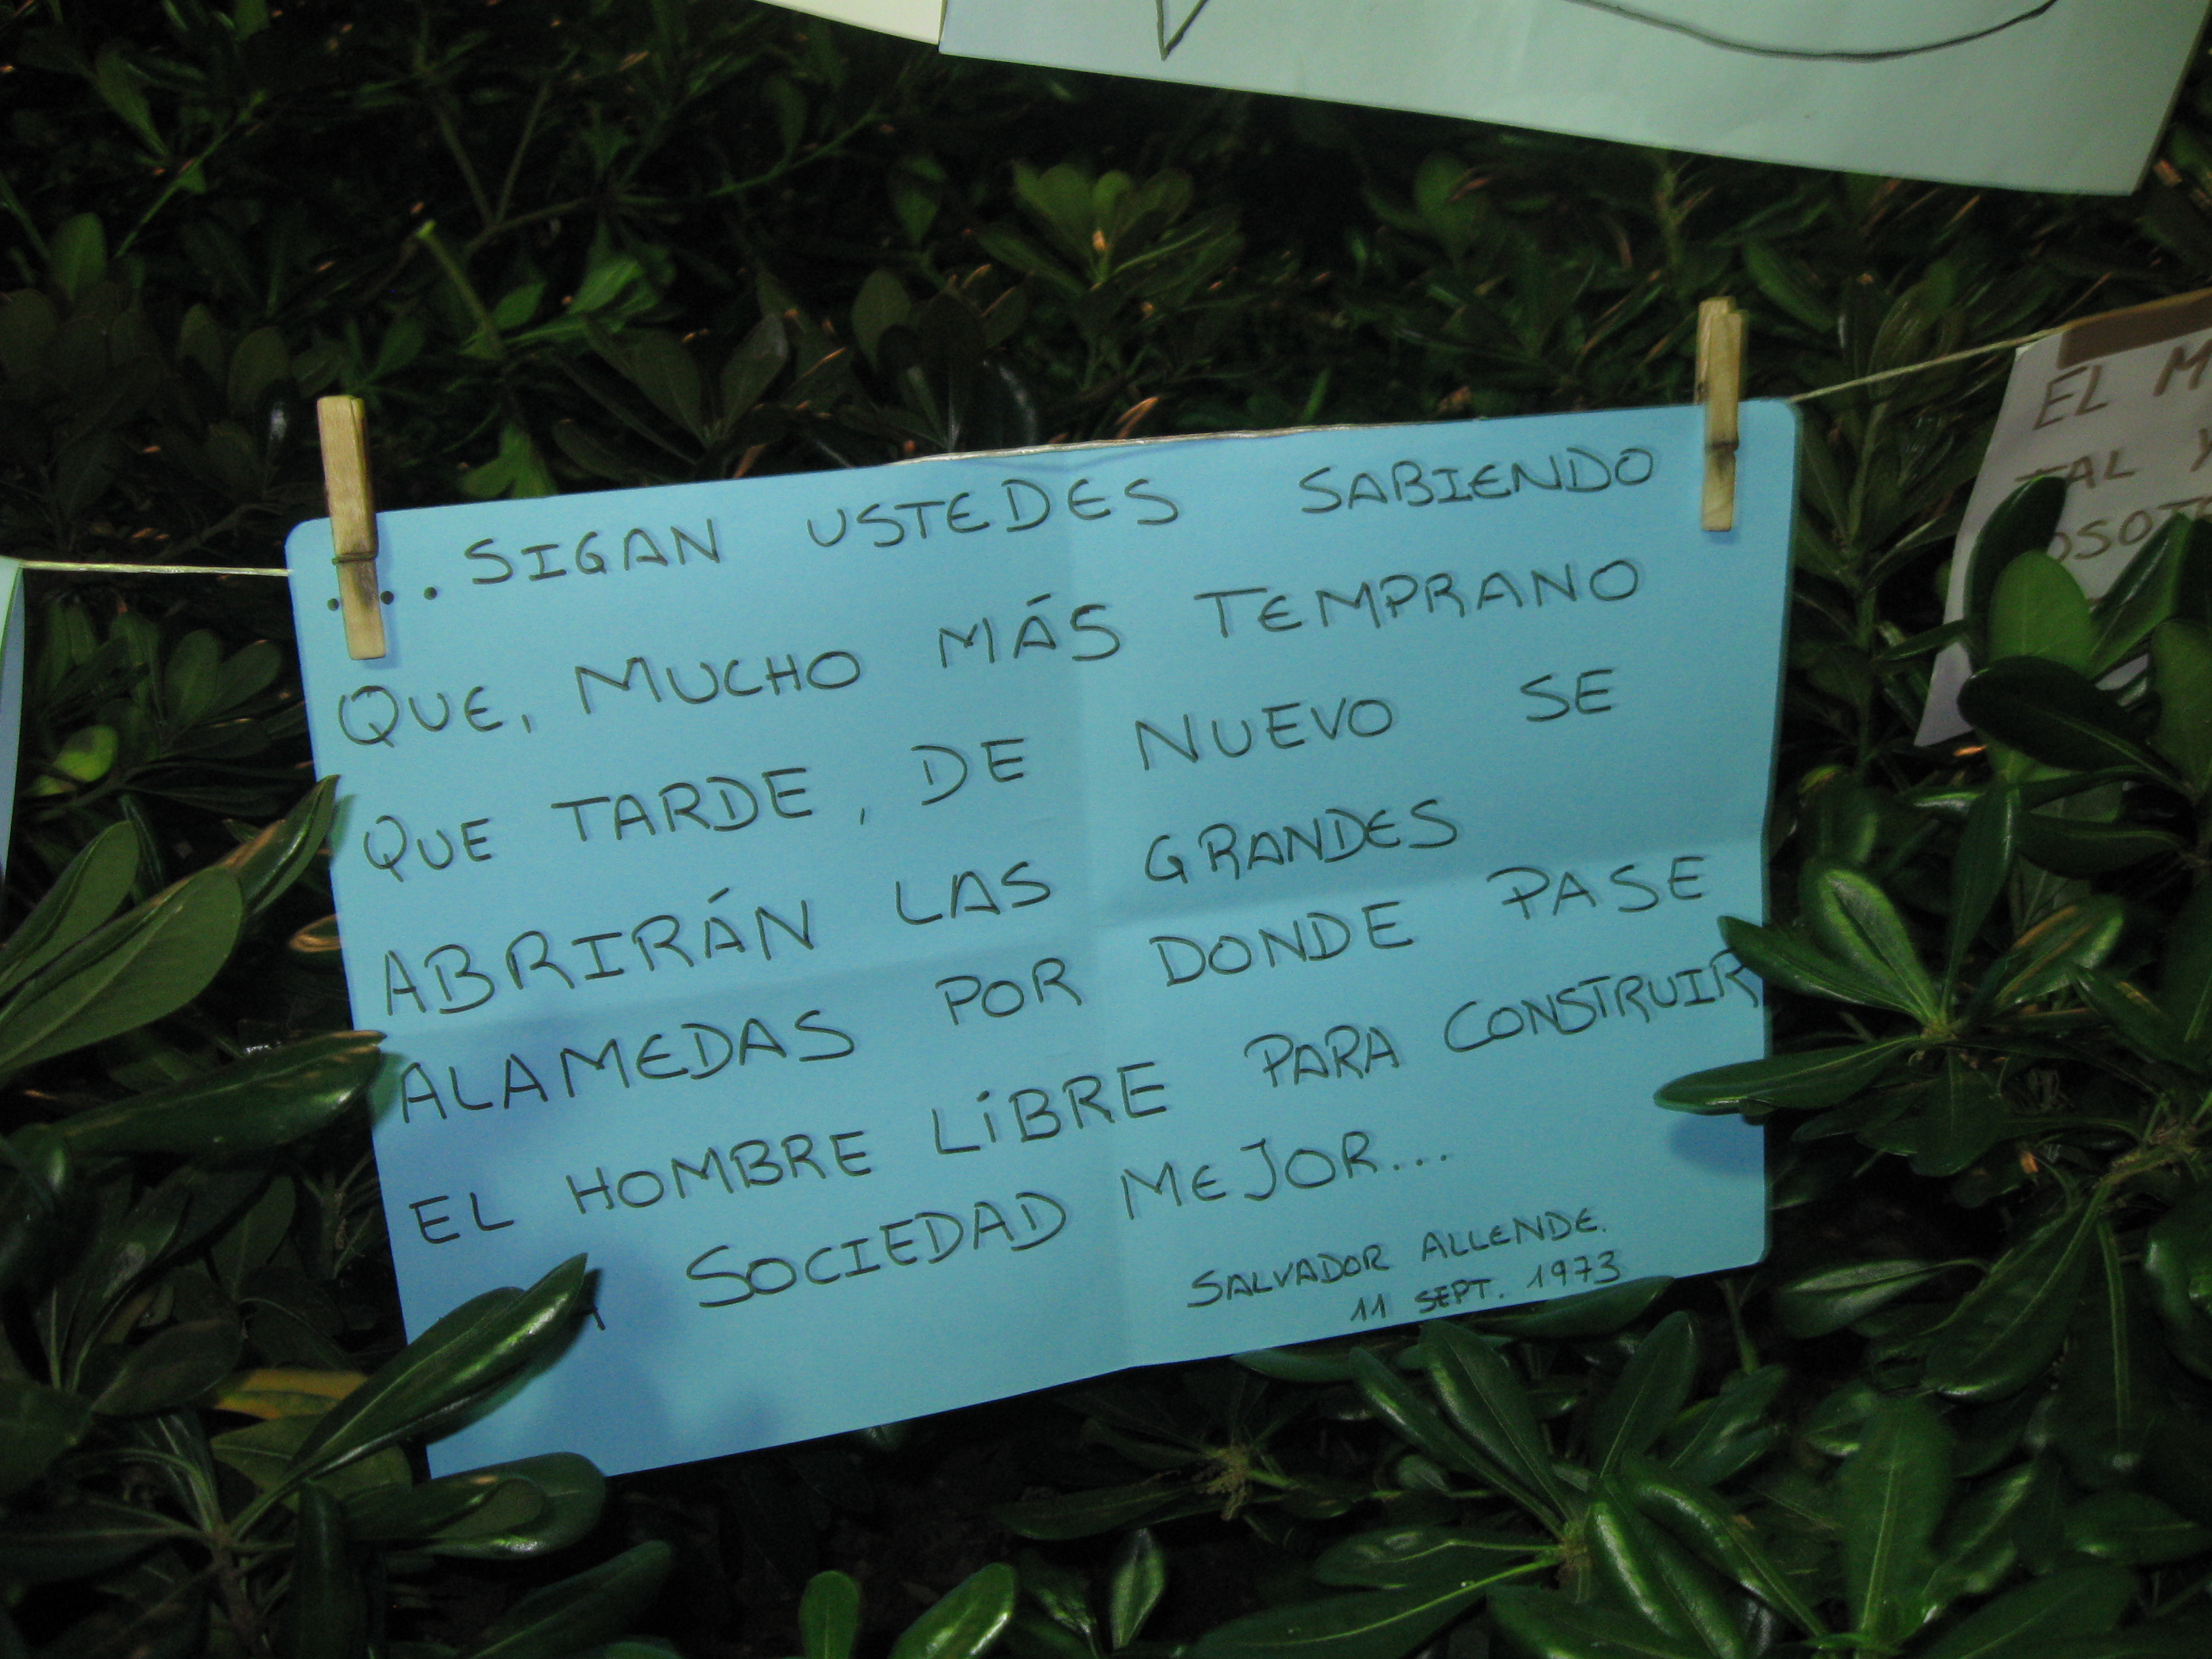 ...SIGAN USTEDES SABIENDO
QUE, MUCHO MÁS TEMPRANO
QUE TARDE, DE NUEVO SE
ABRIRÁN LAS GRANDES
ALAMEDAS POR DONDE PASE
EL HOMBRE LIBRE PARA CONSTRUIR
SOCIEDAD MEJOR...
SALVADOR ALLENDE.
11 SEPT. 1973
EL